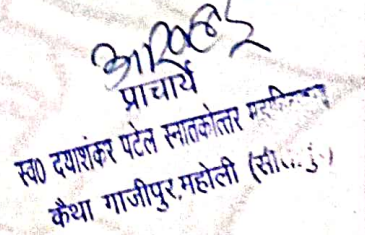 प्राचार्य
स्व0 दयाशंकर पटेल स्नातकोत्तर
कैथा गाजीपुर,महोली